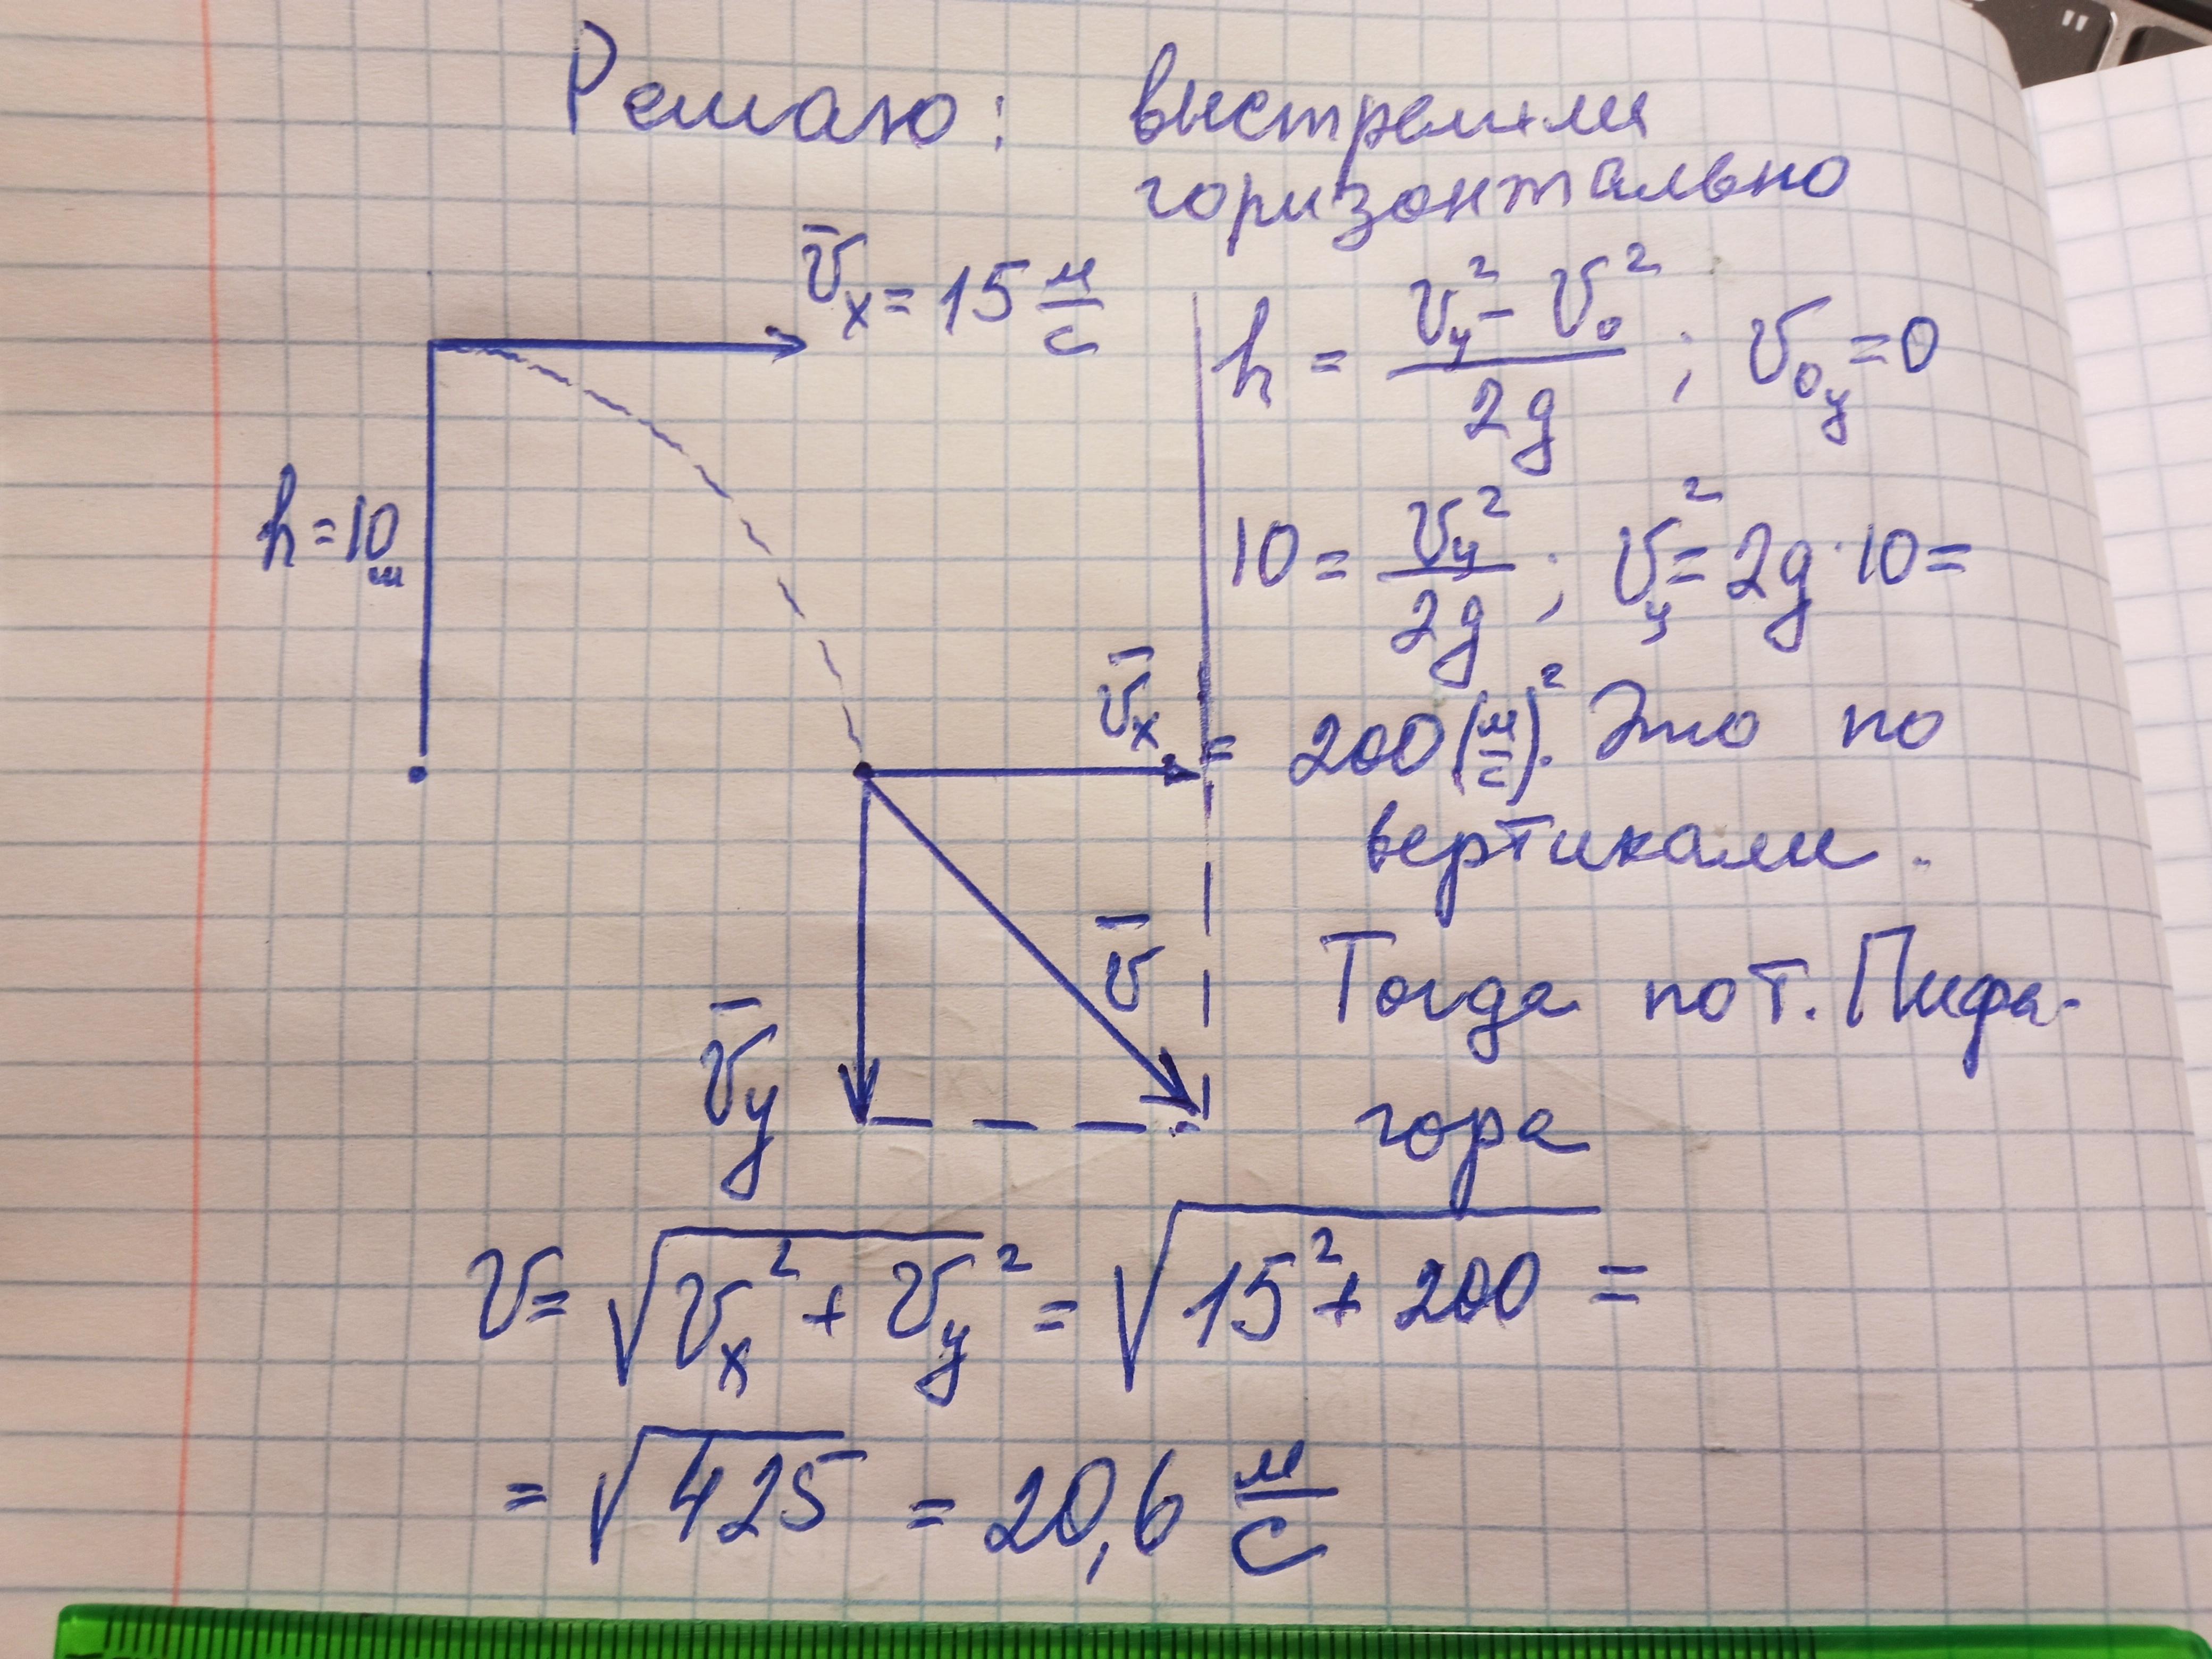 Решаю: выстрелили
горизонтально
v̄ₓ = 15 м/с
h = (v_y² - v₀²)/2g ; v₀_y = 0
h = 10 м
10 = v_y²/2g ; v_y² = 2g · 10 =
v̄ₓ
= 200 (м/с)². Это по
вертикали.
v̄
Тогда по т. Пифа-
v̄_y
гора
v = √(vₓ² + v_y²) = √(15² + 200) =
= √425 = 20,6 м/с